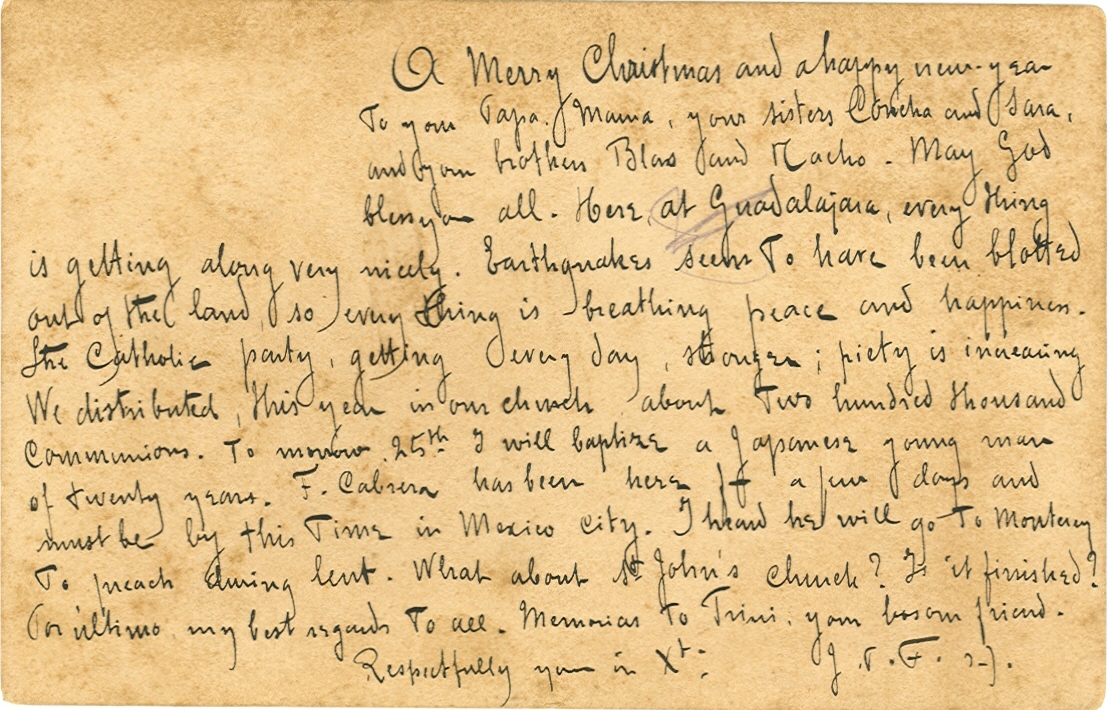 A Merry Christmas and a happy new-year
To your Papa, Mama, your sisters Concha and Sara,
and your brothers Blas and Nacho. May God
bless you all. Here, at Guadalajara, every thing
is getting along very nicely. Earthquakes seems To have been blotted
out of the land, so every thing is breathing peace and happiness.
The Catholic party, getting every day, stronger; piety is increasing
We distributed, this year in our church about Two hundred thousand
Communions. To morrow 25th I will baptize a Japanese young man
of twenty years. F. Cabrera has been here a few days and
must be by this Time in Mexico City. I heard he will go To Monterey
To preach during lent. What about St John's church? Is it finished?
Por último, my best regards To all. Memorias To Trini, your bosom friend.
Respectfully your in Xt: